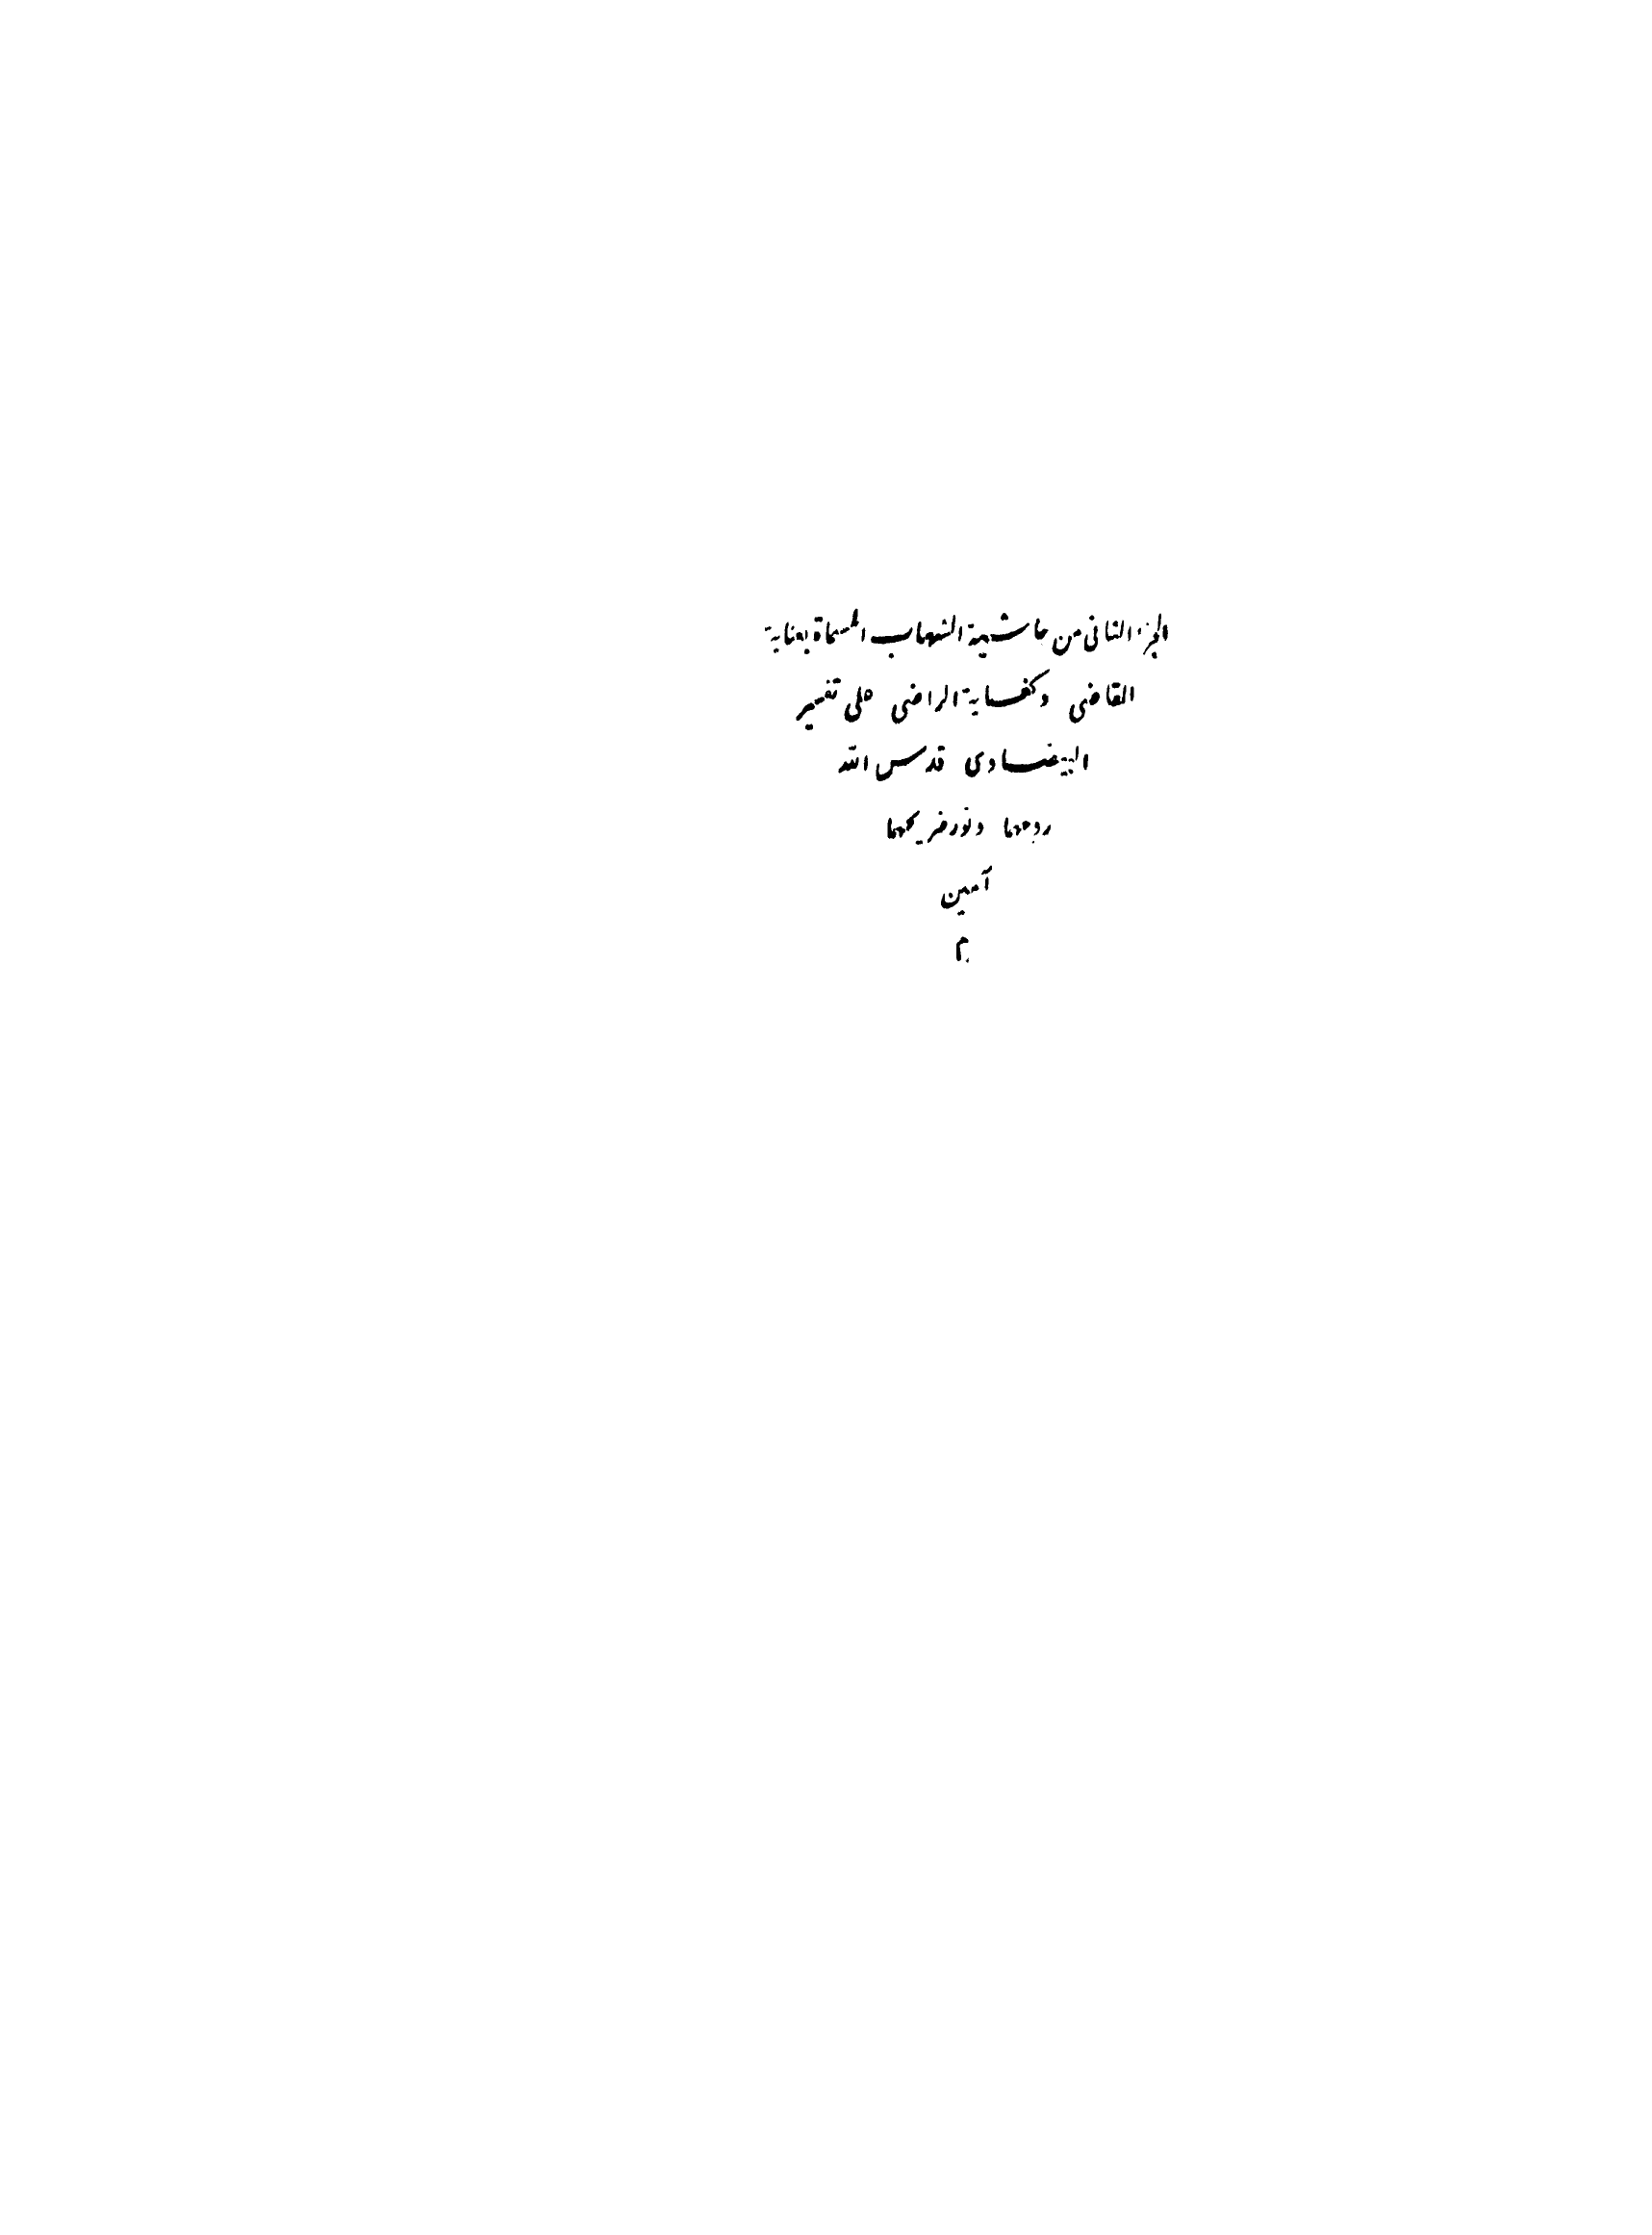 الجزء الثانى من حاشية الشهاب المسماة بعناية
القاضى وكفاية الراضى على تفسير
البيضاوى قدس الله
روحهما ونور ضريحهما
آمين
م